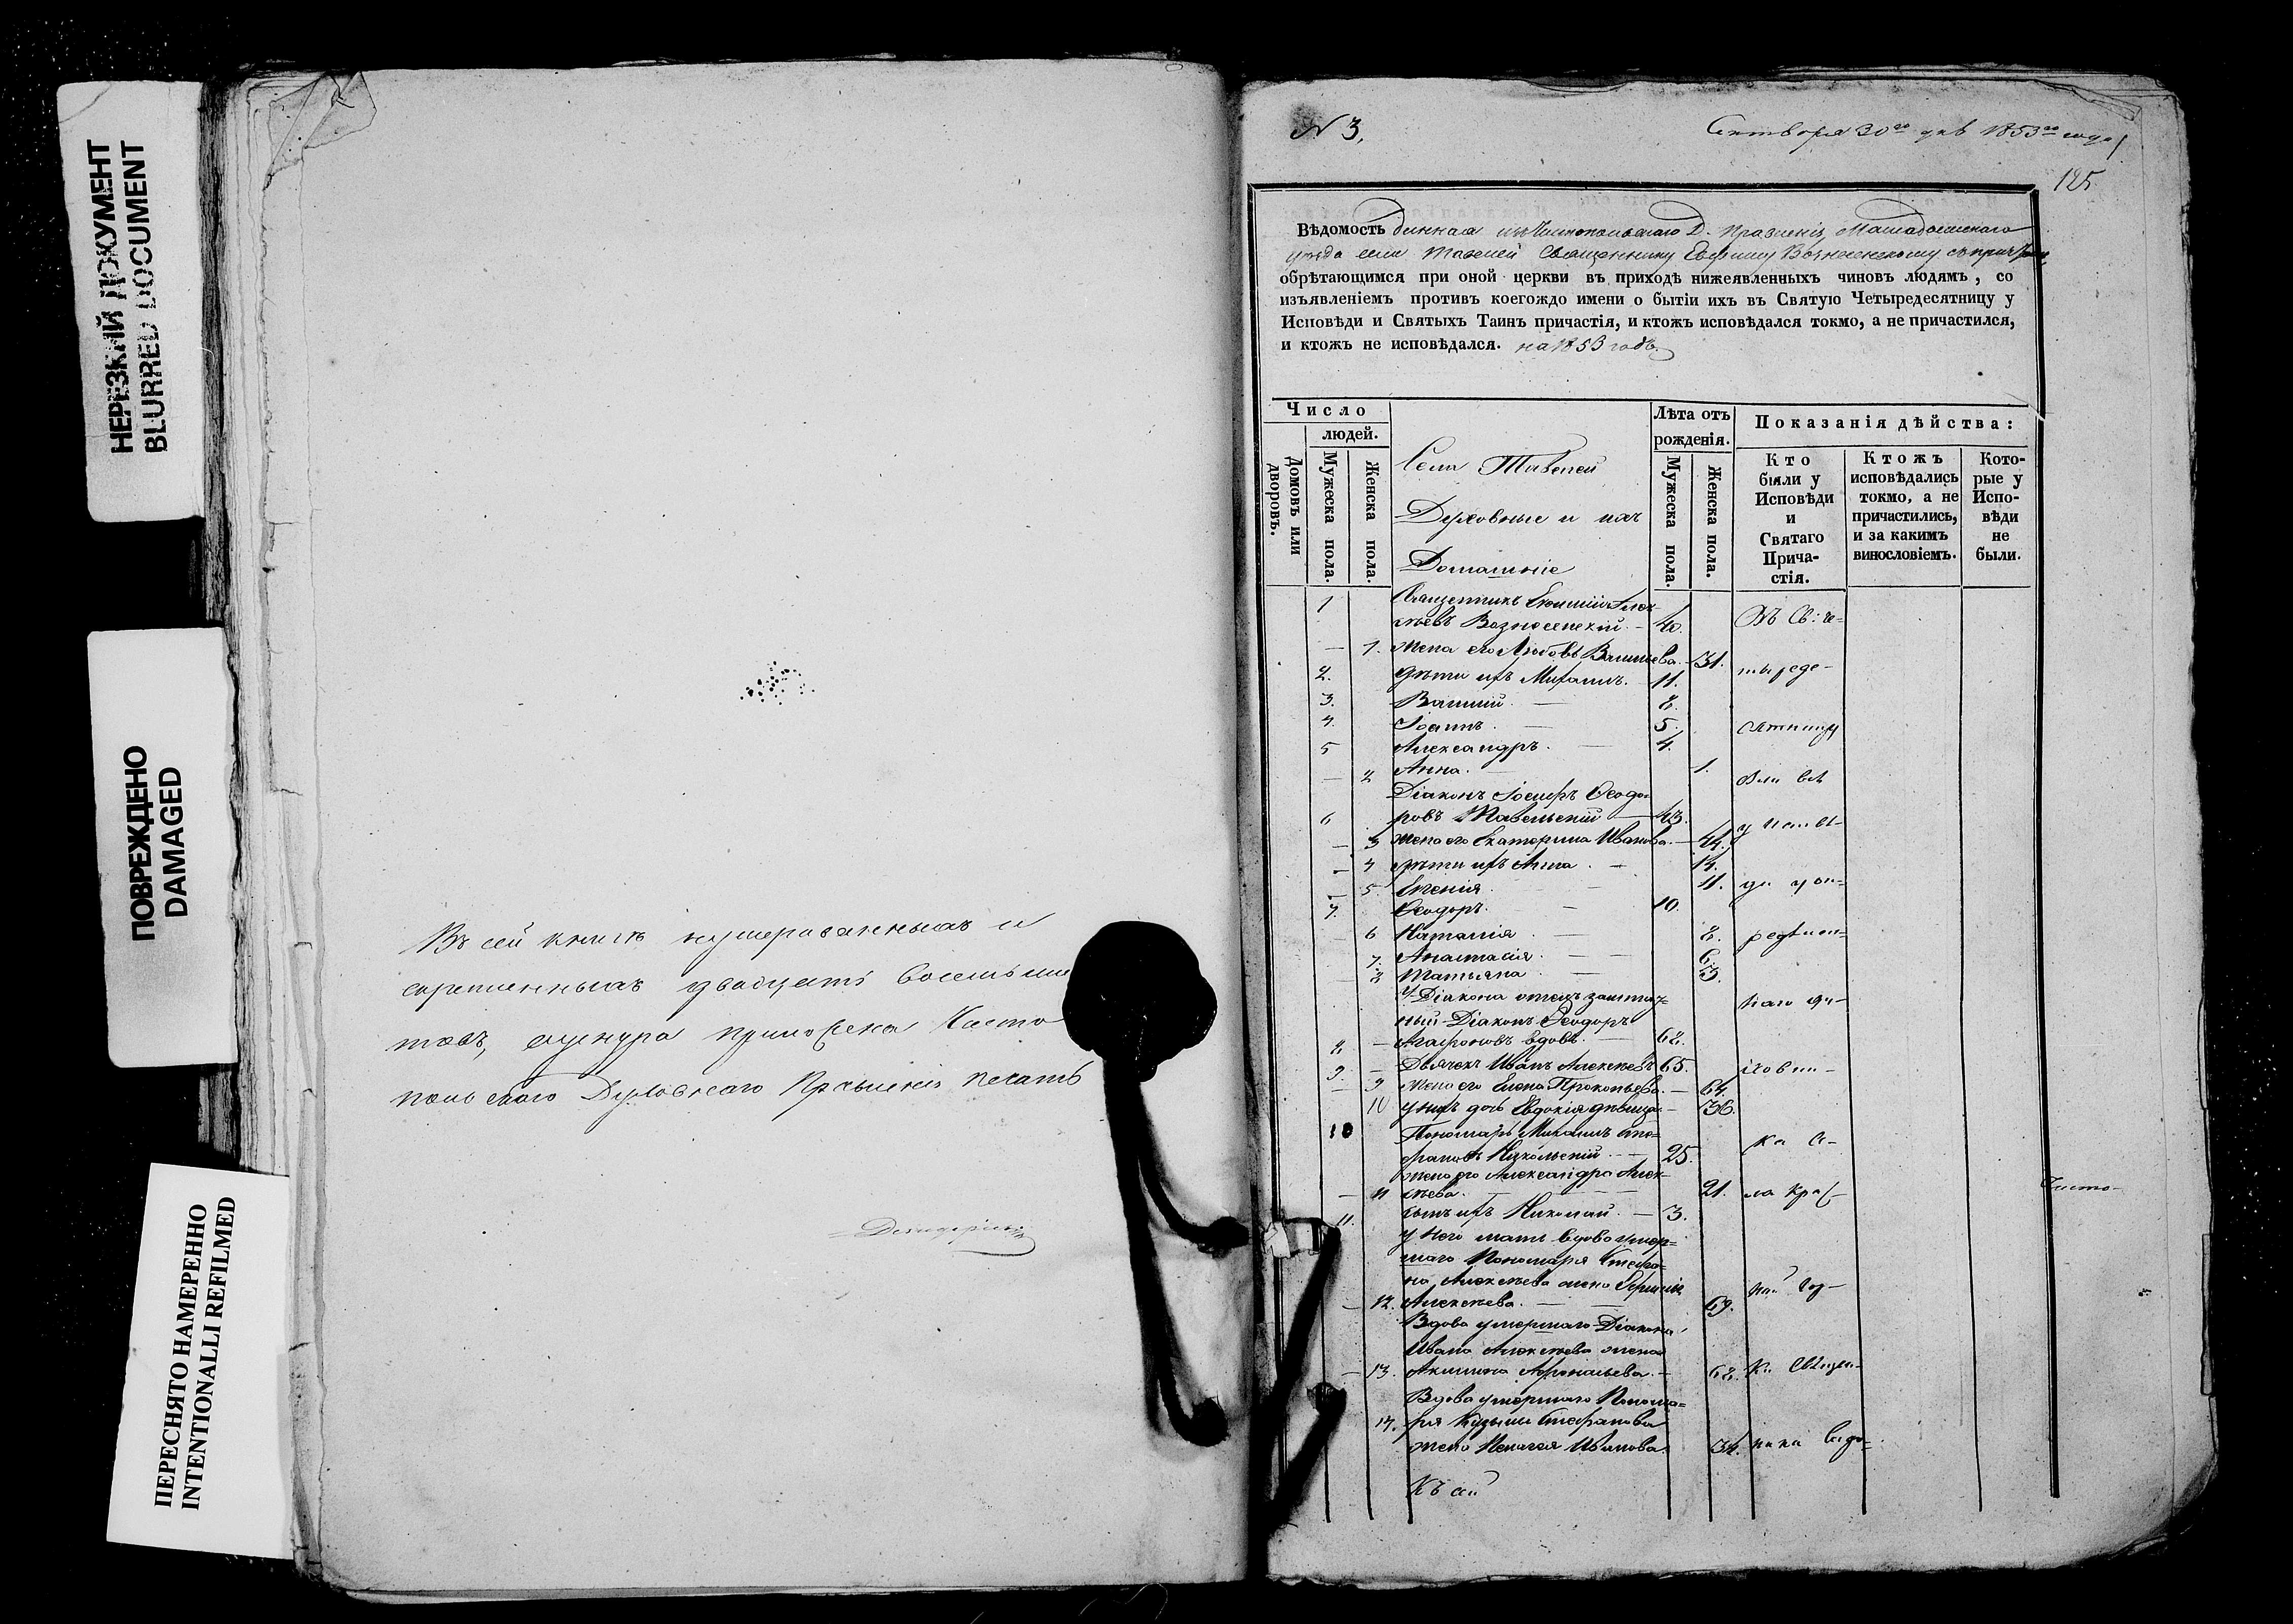 НЕРЕЗКИЙ ДОКУМЕНТ
BLURRED DOCUMENT
ПОВРЕЖДЕНО
DAMAGED
ПЕРЕСНЯТО НАМЕРЕННО
INTENTIONALLI REFILMED
Въ сей книгѣ нумерованныхъ и
скрепленныхъ двадцать восемь
товъ, приложена Чисто
польскаго Духовнаго Правленія печать
N 3,
30го 1853го года
125
Вѣдомость данная изъ Чистопольскаго Д. Правленія, Мамадышскаго
уѣзда села Тавелей Священнику Евфимію Вознесенскому съ причтомъ,
обрѣтающимся при оной церкви въ приходѣ нижеявленныхъ чиновъ людямъ, со
изъявленіемъ противъ коегождо имени о бытіи ихъ въ Святую Четыредесятницу у
Исповѣди и Святыхъ Таинъ причастія, и ктожъ исповѣдался токмо, а не причастился,
и ктожъ не исповѣдался. на 1853 годъ.
Число
людей.
Домовъ или дворовъ.
Мужеска пола.
Женска пола.
Села Тавелей
Духовные и ихъ
Домашніе
Лѣта отъ рожденія.
Мужеска пола.
Женска пола.
Показанія дѣйства:
Кто были у Исповѣди и Святаго Прича-стія.
Ктожъ исповѣдались токмо, а не причастились, и за какимъ винословіемъ.
Кото-рые у Испо-вѣди не были.
1 Священникъ Евфимій Алек-
сѣевъ Вознесенскій. – 40. Въ Св: че-
– 1. Жена его Любовь Васильева. – 31.
2. Дѣти ихъ Михаилъ. – 11. тыреде-
3. Василій. – 8.
4. Іоаннъ. – 5. сятницу
5 Александръ. – 4.
– 2 Анна. 1. были всѣ
Діаконъ Іосифъ Ѳеодо-
6 ровъ Тавельскій – 43. у исповѣ-
– 3 Жена его Екатерина Иванова. – 44.
– 4 дѣти ихъ Анна. – 14.
– 5 Евгенія. – 11. ди у оп-
7. Ѳеодоръ. – 10.
6 Наталія. – 8. редѣлен-
7. Анастасія. – 6.
8 Татьяна. – 3.
У Діакона отецъ заштат-
ный Діаконъ Ѳеодоръ наго ду-
8. – Агафоновъ вдовъ. – 68.
9. – Дьячекъ Иванъ Алексѣевъ 65. ховни-
– 9 Жена его Елена Прокопьева. – 64.
10 у нихъ дочь Евдокія дѣвица. – 36.
10 Пономарь Михаилъ Сте- ка Се-
фановъ Никольскій. – 25.
жена его Александра Алек-
– 11 сѣева. – 21. ла Крас-
11. сынъ ихъ Николай. – 3.
Чисто-
у него мать вдова умер-
шаго Пономаря Стефа-
на Алексѣева жена
– 12. Алексѣева. – 69.
Вдова умершаго Діакона
Ивана Алексѣева жена
– 13. Акилина Афонасьева. – 68. Священ-
Вдова умершаго Понома-
14. ря Кузьмы Стефанова
жена Пелагея Иванова. 34. ника